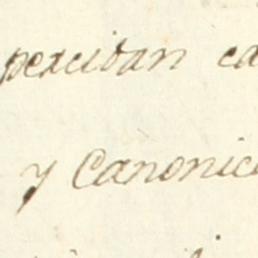 perciban ca
y Canonica